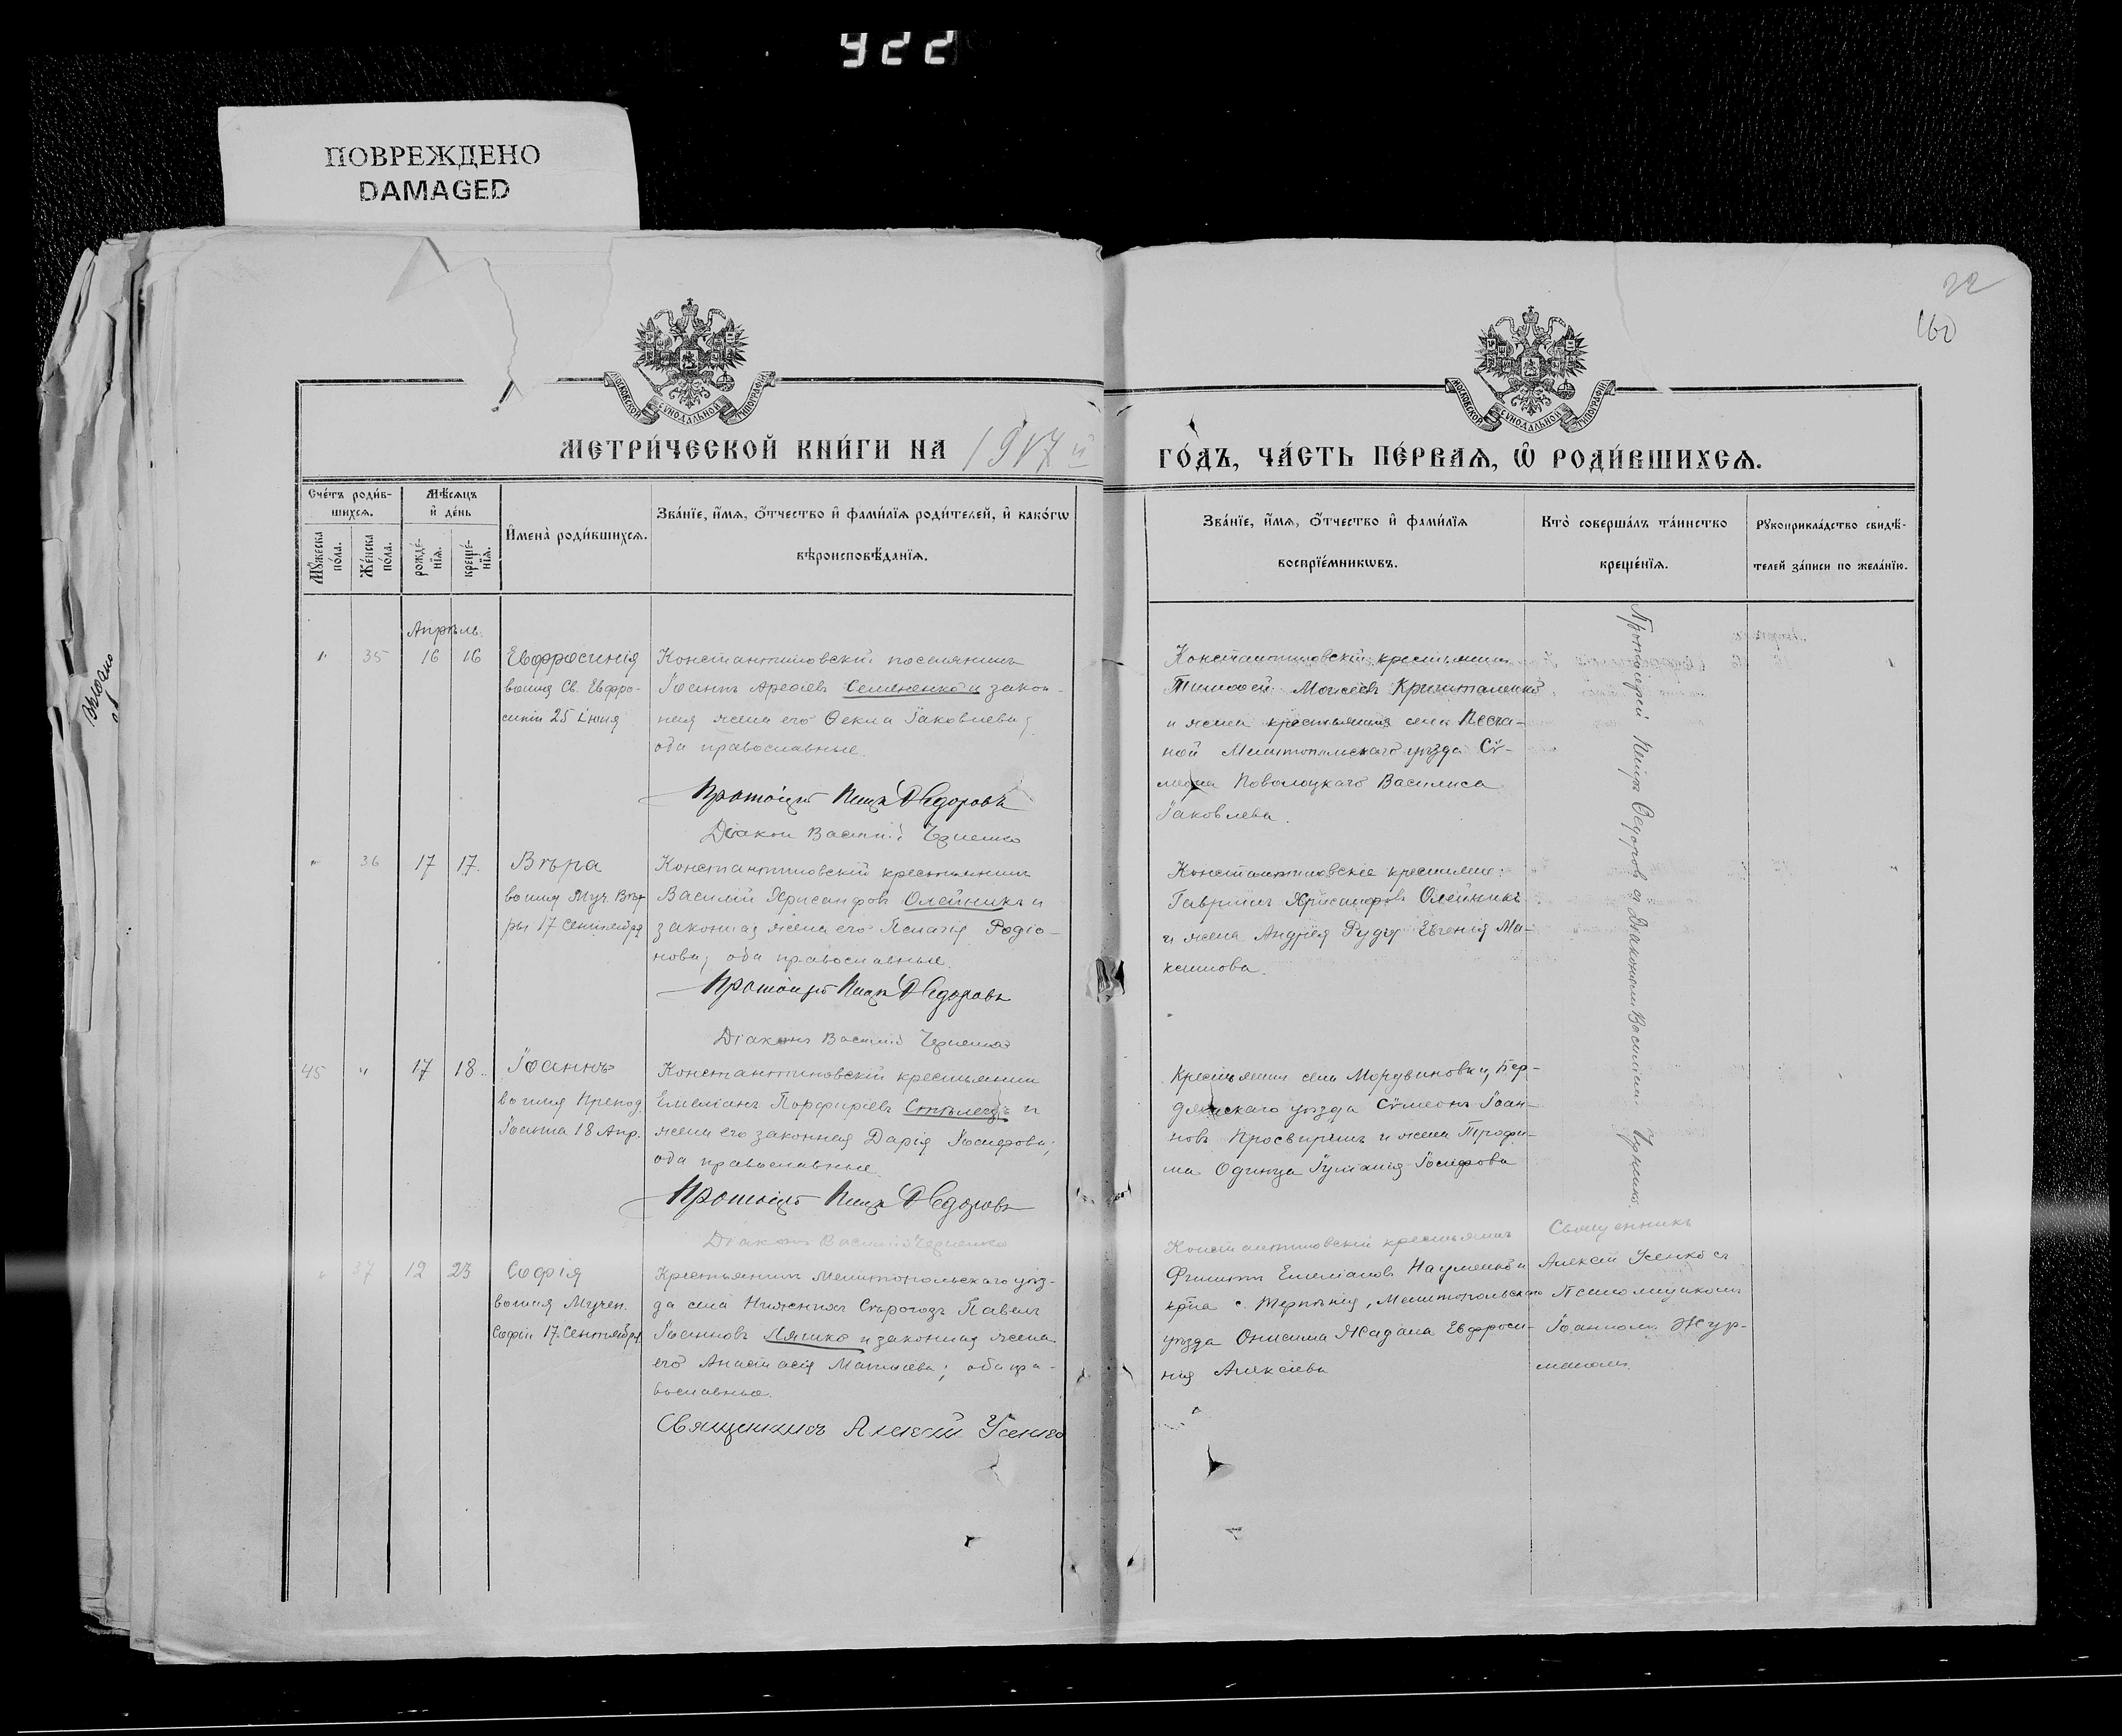 922
ПОВРЕЖДЕНО
DAMAGED
22
160
МОСКОВСКОЙ СУНОДАЛЬНОЙ ТИПОГРАФІИ
МОСКОВСКОЙ СУНОДАЛЬНОЙ ТИПОГРАФІИ
МЕТРИ́ЧЕСКОЙ КНИ́ГИ НА 1917 й
ГО́ДЪ, ЧА́СТЬ ПЕ́РВАѦ, Ѡ҆ РОДИ́ВШИХСѦ.
Сче́тъ роди́в-
шихсѧ.
Мѣ́сѧцъ
и҆ де́нь
Мꙋ́жеска
по́ла.
Же́нска
по́ла.
рожде́-
нїѧ.
креще́-
нїѧ.
И҆мена̀ роди́вшихсѧ.
Зва́нїе, и҆́мѧ, ѻ҆́тчество и҆ фами́лїѧ роди́телей, и҆ како́гѡ
вѣроисповѣ́данїѧ.
Зва́нїе, и҆́мѧ, ѻ҆́тчество и҆ фами́лїѧ
воспрїе́мникѡвъ.
Кто̀ соверша́лъ та́инство
креще́нїѧ.
Рꙋкоприкла́дство свидѣ́-
телей за́писи по жела́нїю.
Апрѣль.
" 35 16 16
Евфросинія
во имя Св. Евфро-
синіи 25 Іюня
Константиновскій поселянинъ
Іоаннъ Семененко и закон-
ная жена его Ѳекла Іаковлева;
оба православные.
Протоіерей Петръ Ѳедоровъ
Діаконъ Василій Черненко
Константиновскій крестьянинъ
Тимоѳей Моисеевъ Кришталенко
и жена крестьянина села Песча-
ной Мелитопольскаго уѣзда Сѵ-
меона Поволоцкаго Василиса
Іаковлева.
Протоіерей Петръ Ѳедоровъ съ Діакономъ Василіемъ Черненко.
" 36 17 17.
Вѣра
во имя Муч. Вѣ-
ры 17 Сентября
Константиновскій крестьянинъ
Василій Хрисанфовъ Олейникъ и
законная жена его Пелагія Родіо-
нова; оба православные.
Протоіерей Петръ Ѳедоровъ
Діаконъ Василій Черненко
Константиновскіе крестьяне:
Гавріилъ Хрисанфовъ Олейникъ
и жена Андрея Евгенія Ма-
ксимова.
45 " 17 18.
Іоаннъ
во имя Препод.
Іоанна 18 Апр.
Константиновскій крестьянинъ
Емеліанъ Порфиріевъ Стрѣлецъ и
жена его законная Дарія Іосифова;
оба православные
Протоіерей Петръ Ѳедоровъ
Діаконъ Василій Черненко
Крестьянинъ села Мордвиновки, Бер-
дянскаго уѣзда Сѵмеонъ Іоан-
новъ Просвиринъ и жена Трофи-
ма Одинца Іуліанія Іосифова
" 37 12 23
Софія
во имя Мучен.
Софіи 17 Сентября
Крестьянинъ Мелитопольскаго уѣз-
да села Нижнихъ Сѣрогозъ Павелъ
Іоанновъ Ляшко и законная жена
его Анастасія Матѳіева; оба пра-
вославные.
Священникъ Алексій Усенко
Константиновскій крестьянинъ
Филиппъ Емеліановъ Науменко и
кр-на с. Терпѣнія, Мелитопольскаго
уѣзда Онисима Жадана Евфроси-
нія Алексіева
Священникъ
Алексій Усенко съ
Псаломщикомъ
Іоанномъ Жур-